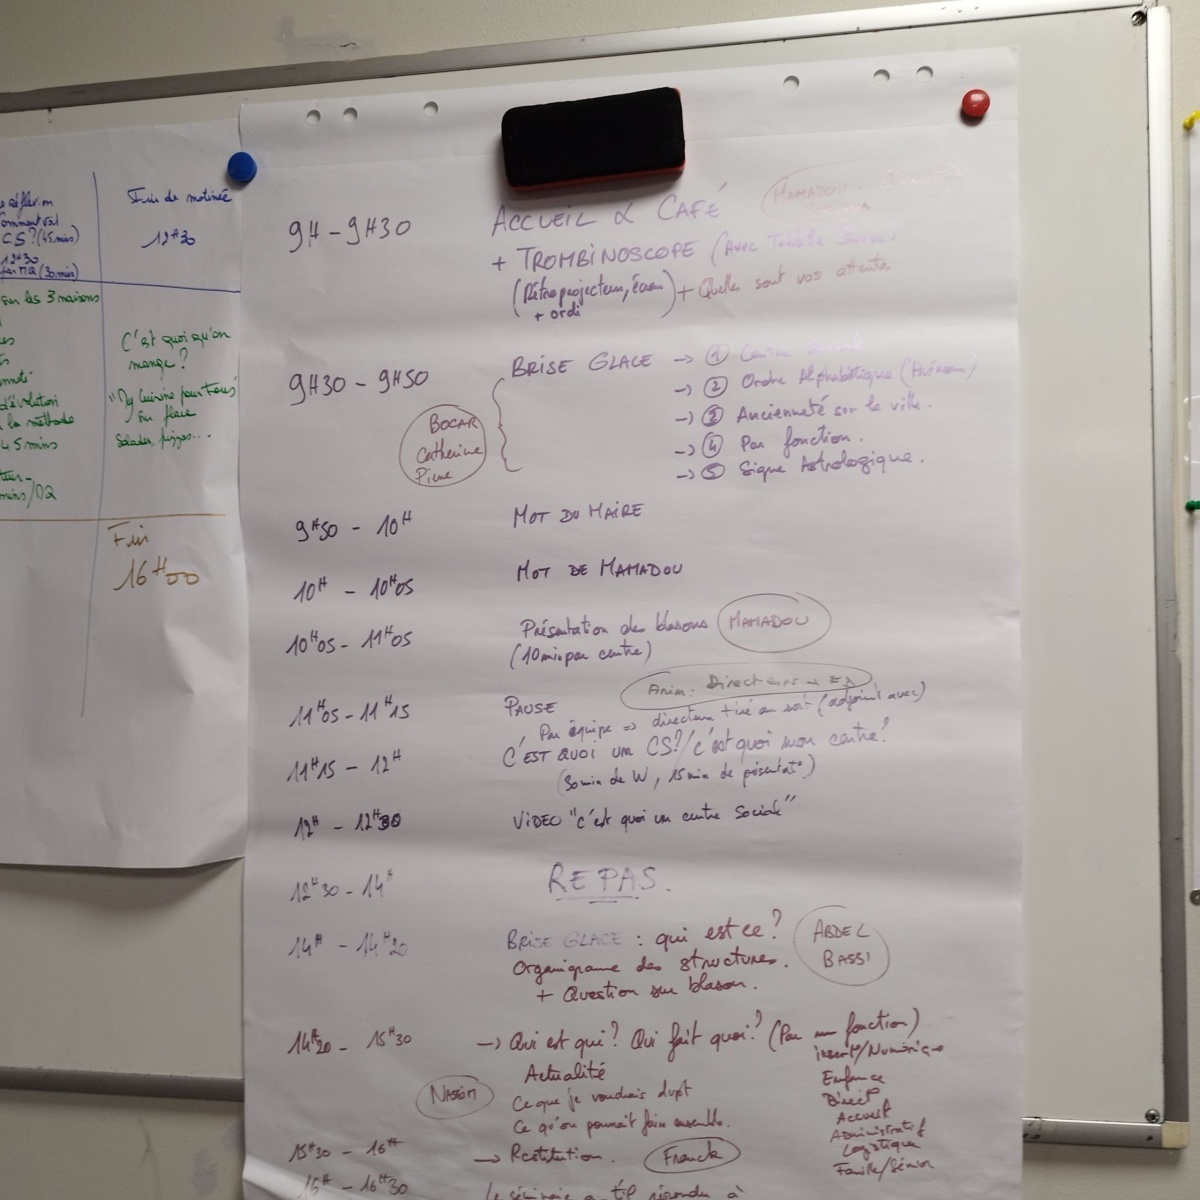 réflexion
Comment val
CS? (45 mins)
12H30
(30 mins)
Fin de matinée
12H30
sur les 3 maisons
C'est quoi qu'on
mange?
d'évolution
la méthode
45 mins
"My Cuisine pour Tous"
Sur place
Salades, pizzas...
mins/D2
Fin
16H00
9H - 9H30
ACCUEIL & CAFÉ
MAMADOU
+ TROMBINOSCOPE (Avec
(Rétroprojecteur, écran
+ ordi
+ Quelles sont vos attentes
9H30 - 9H50
BRISE GLACE → ① Centre
→ ② Ordre Alphabétique (Prénom)
→ ③ Ancienneté sur la ville.
→ ④ Par fonction.
→ ⑤ Signe Astrologique.
BOCAR
Catherine
Pierre
9H50 - 10H
MOT DU MAIRE
10H - 10H05
MOT DE MAMADOU
10H05 - 11H05
Présentation des blasons
MAMADOU
(10 min par centre)
11H05 - 11H15
PAUSE
Anim: Directeurs →
Par équipe => directeur tiré au sort (adjoints avec)
11H15 - 12H
C'EST QUOI UN CS?/c'est quoi mon centre?
(30 min de W, 15 min de présentat°)
12H - 12H30
VIDEO "c'est quoi un centre Social"
12H30 - 14H
REPAS.
14H - 14H20
BRISE GLACE : qui est ce?
Organigramme des structures.
+ Question sur blason.
ABDEL
BASSI
14H20 - 15H30
→ Qui est qui? Qui fait quoi? (Par fonction)
Actualité
Ce que je voudrais
Ce qu'on pourrait faire ensemble.
NASSIM
insert°/Numérique
Enfance
Direct°
Accueil
Administratif
Logistique
Famille/Sénior
15H30 - 16H
→ Restitution.
Franck
16H - 16H30
Le séminaire a-t'il répondu à